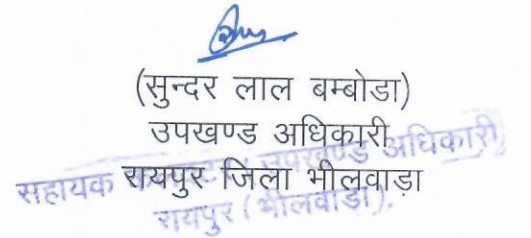 (सुन्दर लाल बम्बोडा)
उपखण्ड अधिकारी
रायपुर जिला भीलवाड़ा
सहायक उपखण्ड अधिकारी
रायपुर (भीलवाड़ा)